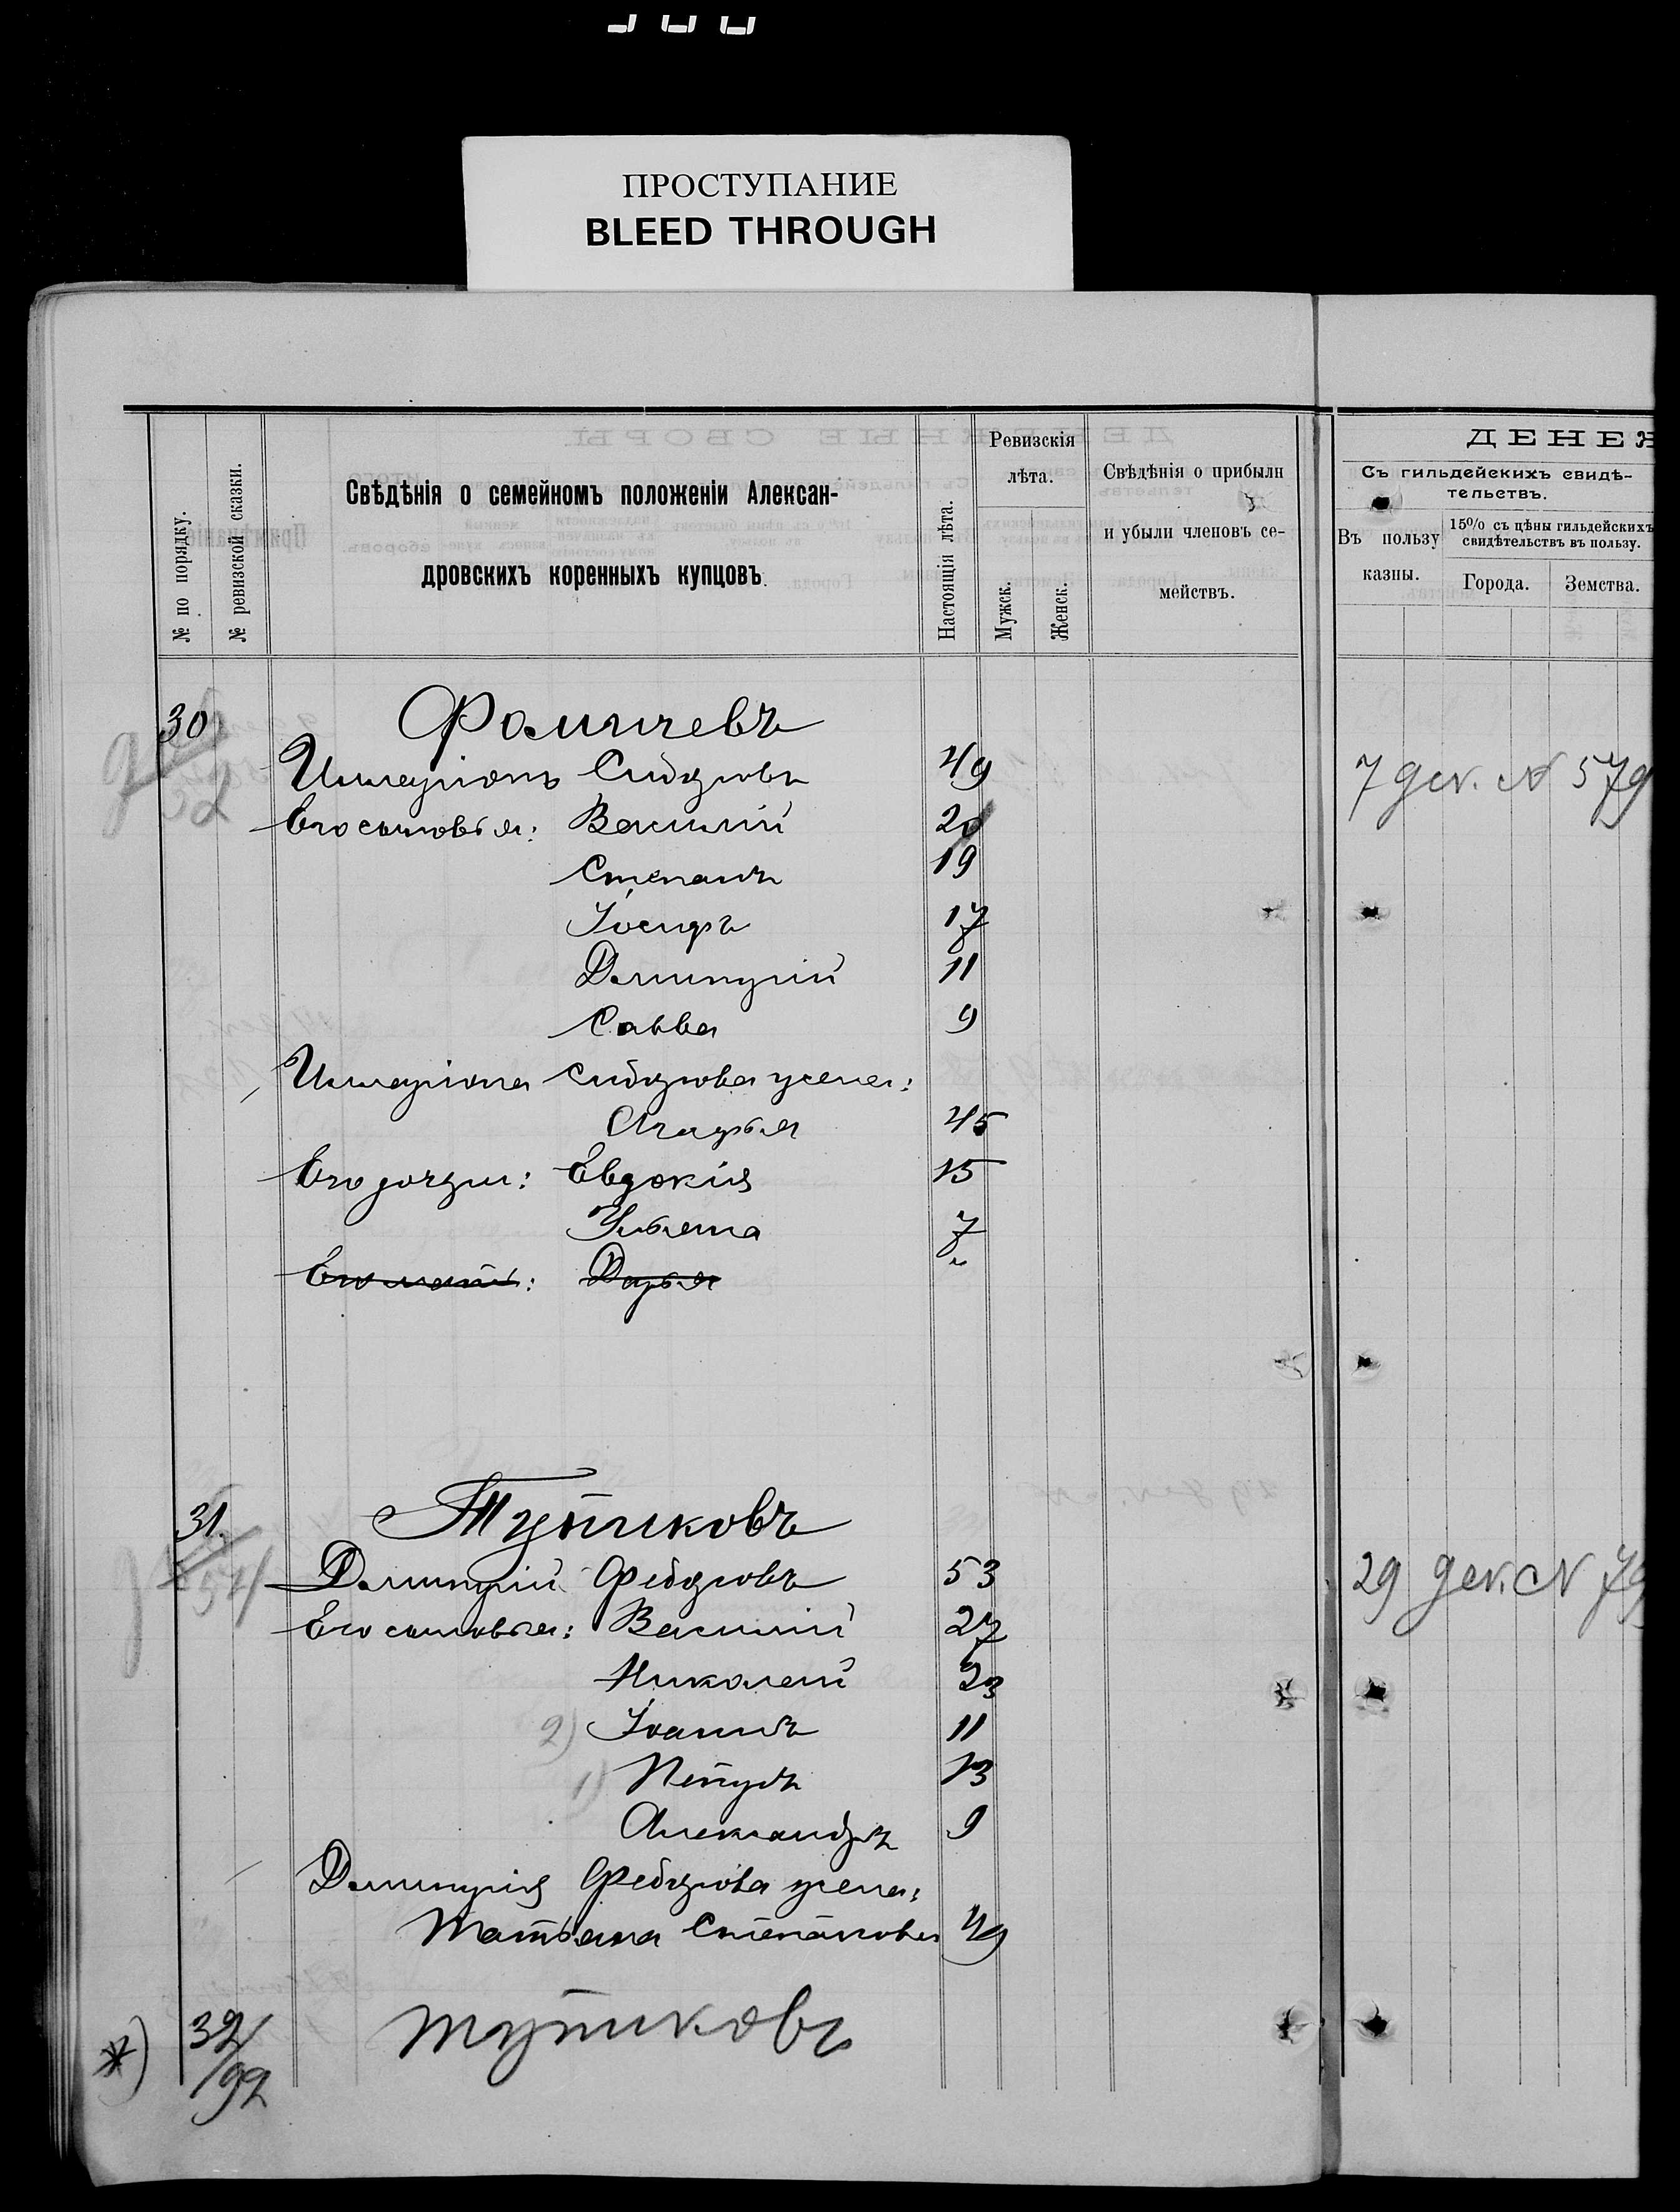 ПРОСТУПАНИЕ
BLEED THROUGH
№ по порядку.
№ ревизской сказки.
Свѣдѣнія о семейномъ положеніи Алексан-
дровскихъ коренныхъ купцовъ.
Настоящія лѣта.
Ревизскія
лѣта.
Мужск.
Женск.
Свѣдѣнія о прибыли
и убыли членовъ се-
мействъ.
ДЕНЕЖ
Съ гильдейскихъ свидѣ-
тельствъ.
Въ пользу
казны.
15% съ цѣны гильдейскихъ
свидѣтельствъ въ пользу.
Города.
Земства.
30 Фомичевъ
Илларіонъ Сидоровъ 49 7 дек. № 579
Его сыновья: Василій 20
Степанъ 19
Іосифъ 17
Дмитрій 11
Савва 9
Илларіона Сидорова жена:
Агафья 45
Его дочери: Евдокія 15
Ульяна 7
Его мать: Дарья "
31. Тупиковъ
Дмитрій Федоровъ 53 29 дек. № 79
54
Его сыновья: Василій 27
Николай 23
2) Іоаннъ 11
1) Петръ 13
Александръ 9
Дмитрія Федорова жена:
Татьяна Степанова 49
*) 32/92 Тупиковъ